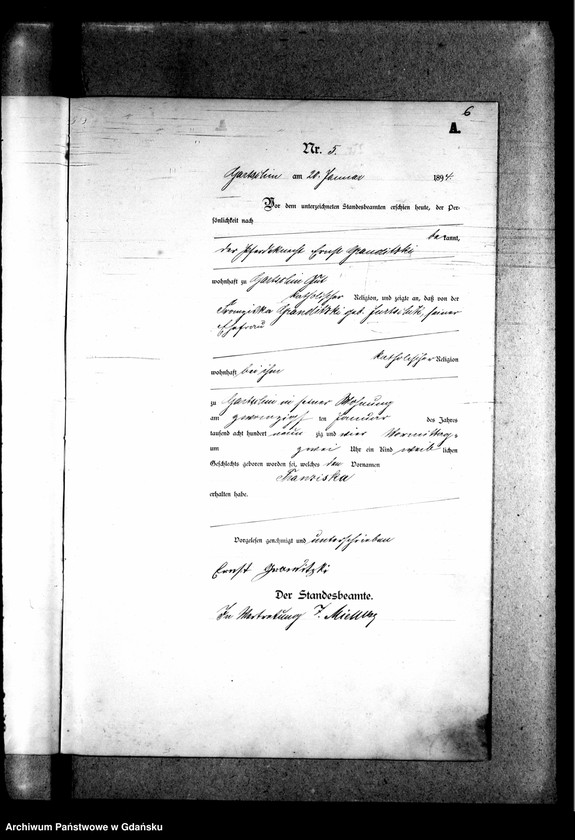 6
A.
Nr. 5.
am 20. Januar 1894.
Vor dem unterzeichneten Standesbeamten erschien heute, der Per-
sönlichkeit nach
bekannt,
der Pferdeknecht Ernst
wohnhaft zu Gut
katholischer Religion, und zeigte an, daß von der
Franziska geb. seiner
Ehefrau
katholischer Religion
wohnhaft bei ihm
zu in seiner Wohnung
am zwanzigsten Januar des Jahres
tausend acht hundert neunzig und vier Vormittags
um zwei Uhr ein Kind weiblichen
Geschlechts geboren worden sei, welches den Vornamen
Franziska
erhalten habe.
Vorgelesen genehmigt und unterschrieben
Ernst
Der Standesbeamte.
In Vertretung
Archiwum Państwowe w Gdańsku